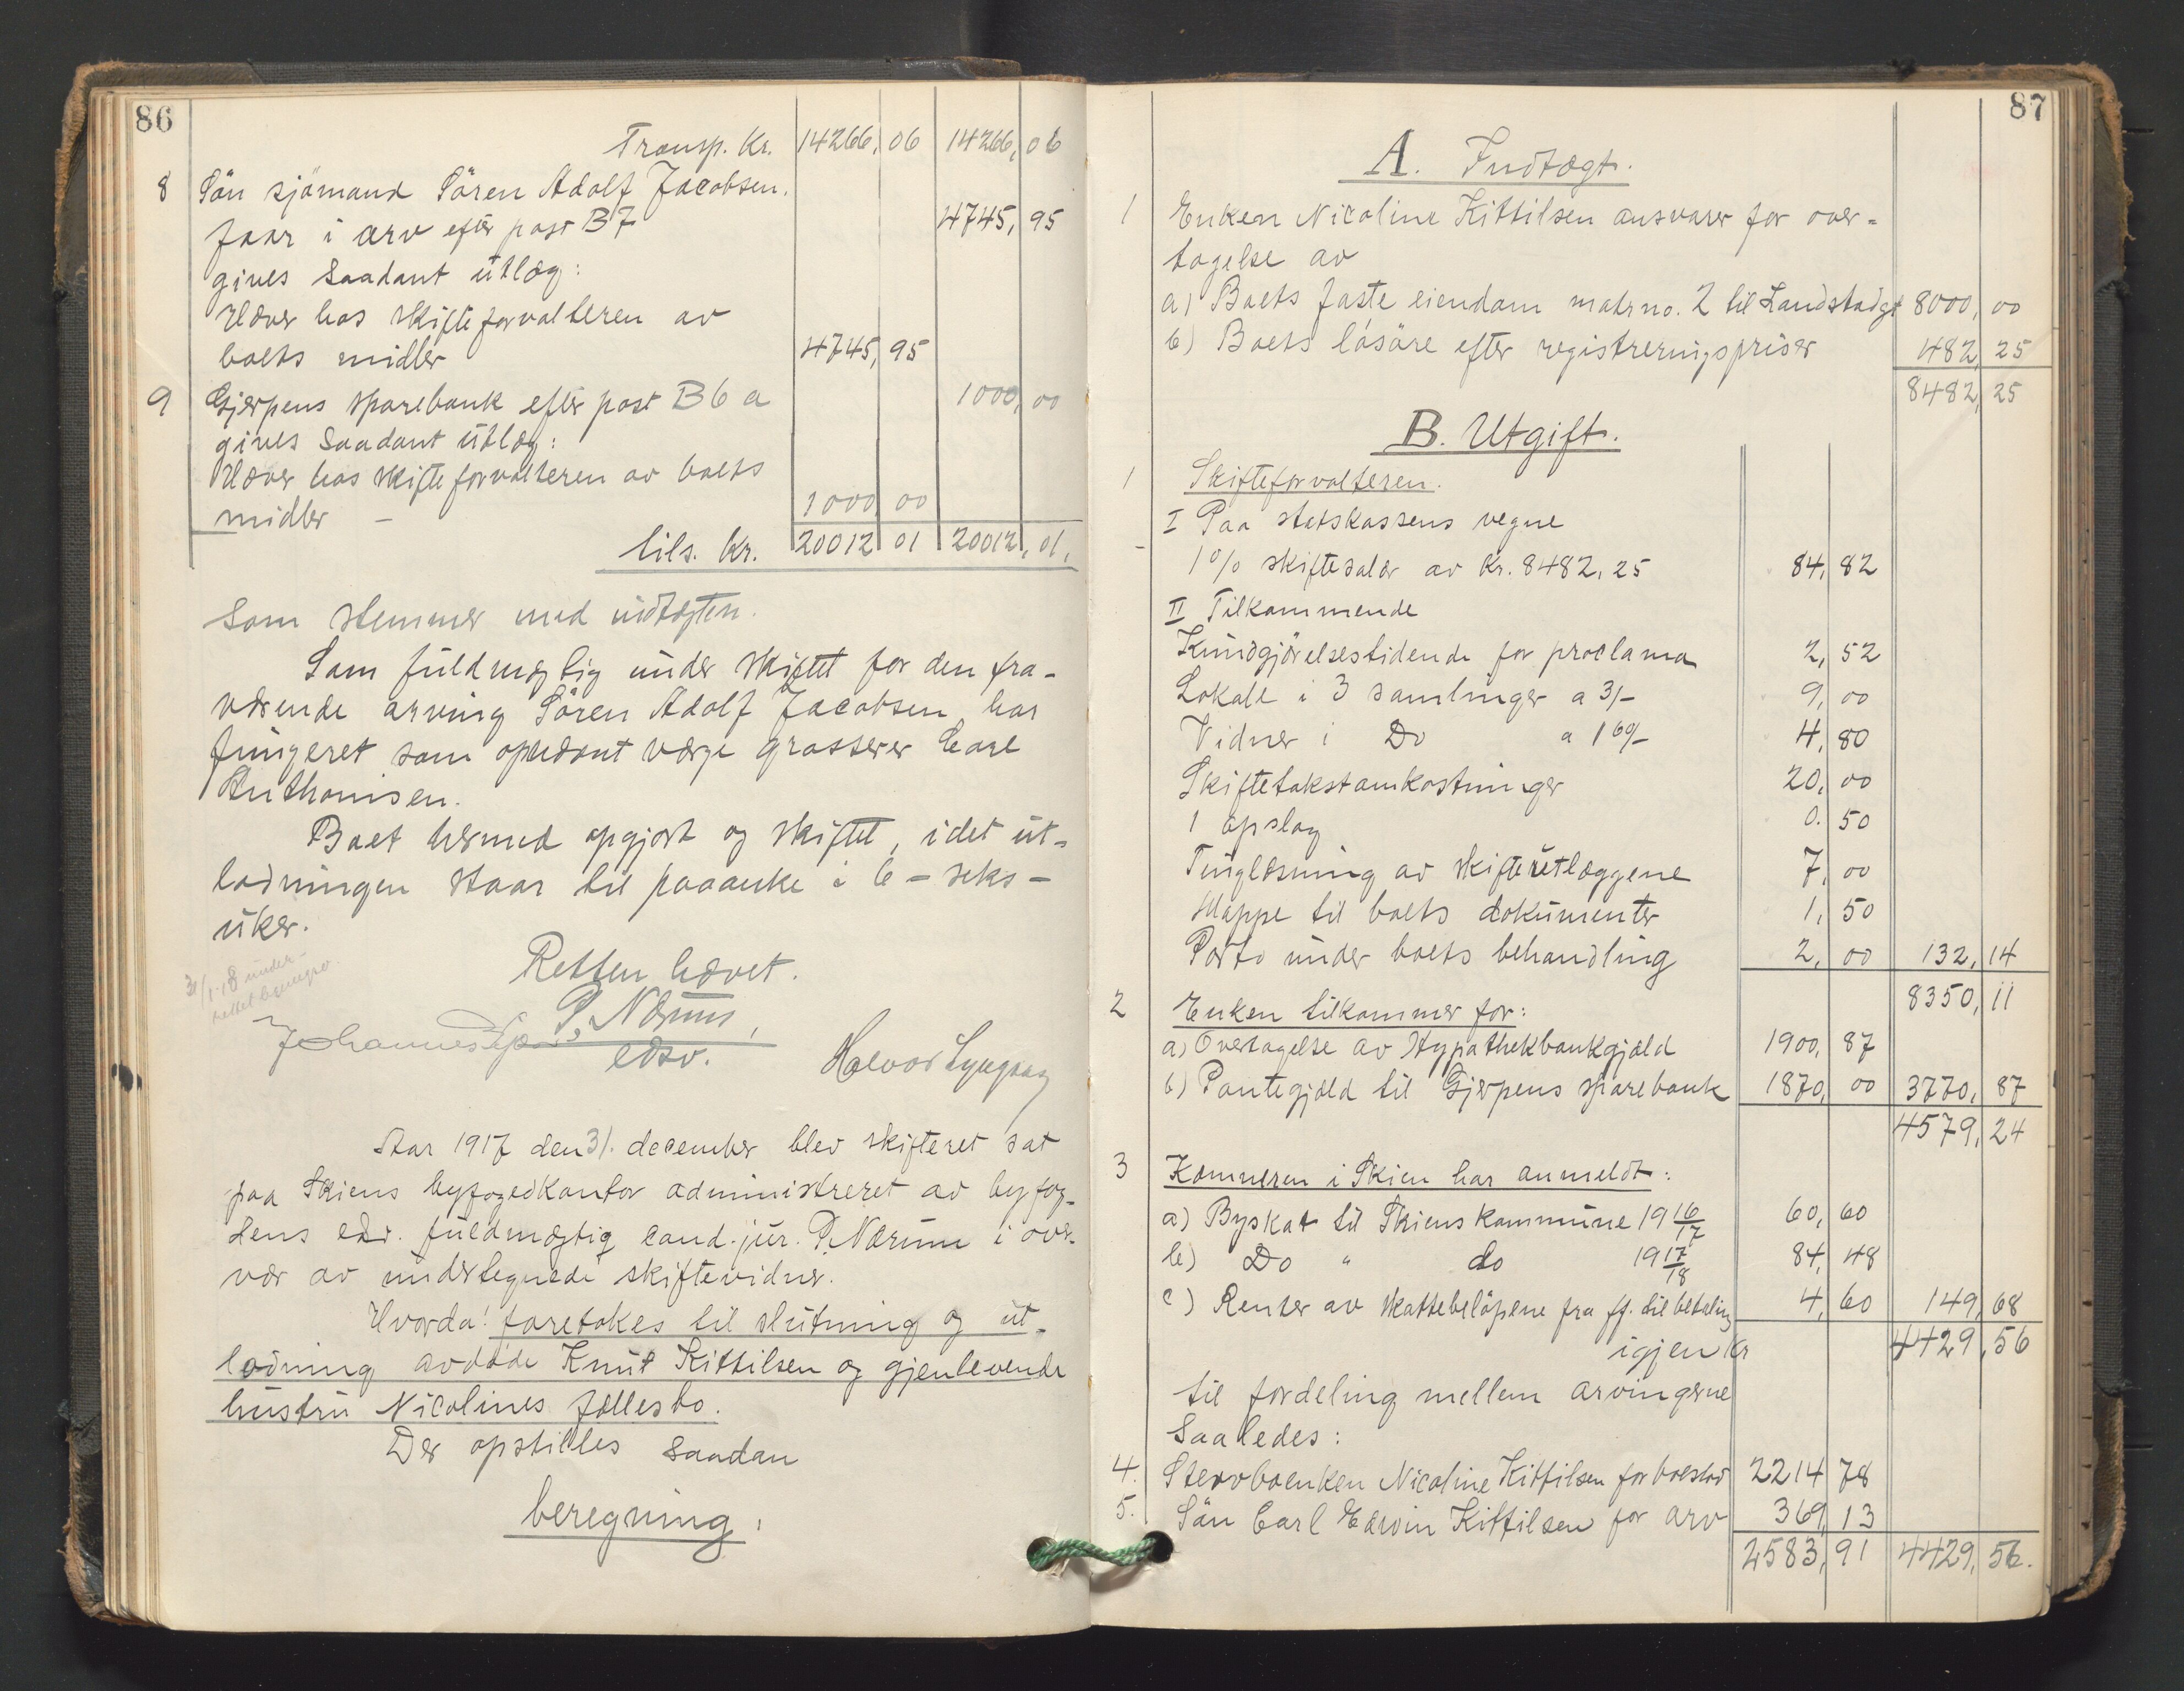 86
Transp. Kr. 14266,06 14266,06
8 Sön sjömand Sören Adolf Jacobsen.
faar i arv efter post B7 4745,95
gives saadant utlæg:
Hæver hos skifteforvalteren av
boets midler 4745,95
9 Gjerpens sparebank efter post B6 a 1000,00
gives saadant utlæg:
Hæver hos skifteforvalteren av boets
midler – 1000,00
tils. Kr. 20012 01 20012,01.
som stemmer med indtægten.
Som fuldmægtig under skiftet for den fra-
værende arving Sören Adolf Jacobsen har
fungeret som opnævnt værge grosserer Carl
Anthonisen.
Boet hermed opgjort og skiftet, idet ut-
lodningen staar til paaanke i 6 – seks –
uker.
31/1-18 under-
Retten hævet.
P. Nærum,
edsv.
Johannes
Halvor Lyngaas
Aar 1917 den 31. december blev skifteret sat
paa Skiens byfogedkontor administreret av byfog-
dens edv. fuldmægtig cand. jur. P. Nærum i over-
vær av undertegnede skiftevidner.
Hvorda! foretokes til slutning og ut-
lodning avdöde Knut Kittilsen og gjenlevende
hustru Nicolines fællesbo.
Der opstilles saadan
beregning:
87
A. Indtægt.
1 Enken Nicoline Kittilsen ansvarer for over-
tagelse av
a) Boets faste eiendom matr no. 2 til Landstadgt 8000,00
b) Boets lösöre efter registreringspriser 482,25
8482,25
B. Utgift.
1 Skifteforvalteren.
I Paa statskassens vegne
1% skiftesalær av Kr. 8482,25 84,82
II Tilkommende
Kundgjörelsestidende for proclama 2,52
Lokale i 3 samlinger a 3/– 9,00
Vidner i Do a 1 60/– 4,80
Skiftetakstomkostninger 20,00
1 opslag 0.50
Tinglæsning av skifteutlæggene 7,00
Mappe til boets dokumenter 1,50
Porto under boets behandling 2,00 132,14
8350,11
2 Enken tilkommer for:
a) Overtagelse av Hypothekbankgjæld 1900,87
b) Pantegjæld til Gjerpens sparebank 1870,00 3770,87
4579,24
3 Kæmneren i Skien har anmeldt:
a) Byskat til Skiens kommune 19 16/17 60,60
b) Do " do 19 17/18 84,48
c) Renter av skattebelöpene fra ff. til betaling 4,60 149,68
igjen Kr 4429,56
til fordeling mellem arvingerne
saaledes:
4. Stervboenken Nicoline Kittilsen for boeslod 2214 78
5. Sön Carl Edvin Kittilsen for arv 369,13
2583,91 4429,56.